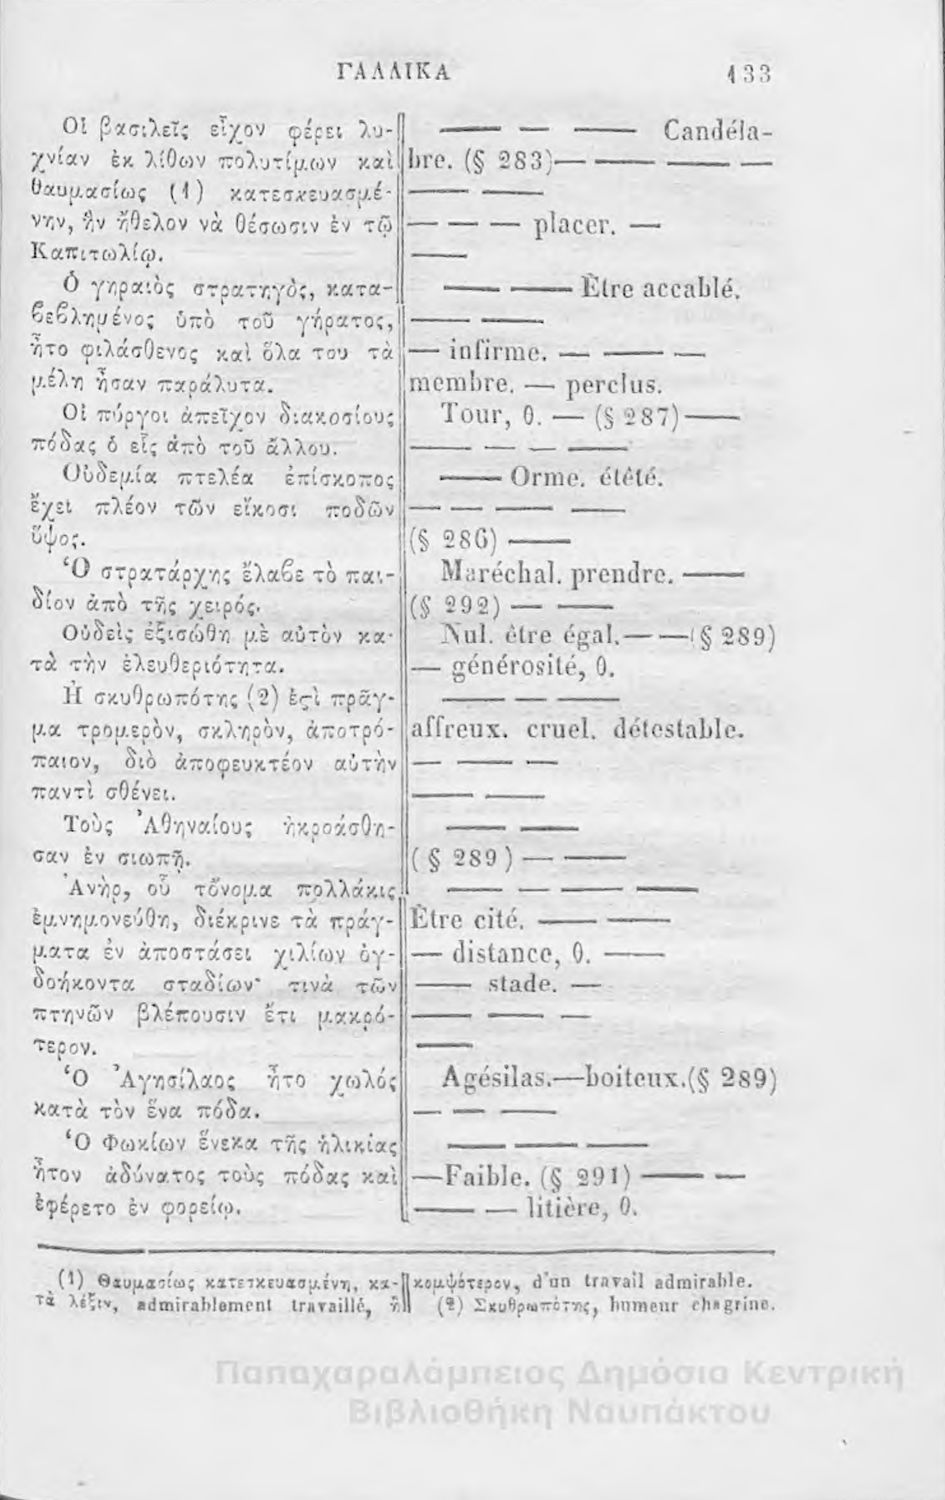 ΓΑΛΛΙΚΑ 133
Οἱ βασιλεῖς εἶχον φέρει λυ-
χνίαν ἐκ λίθων πολυτίμων καὶ
θαυμασίως (1) κατεσκευασμέ-
νην, ἣν ἤθελον νὰ θέσωσιν ἐν τῷ
Καπιτωλίῳ.
Ὁ γηραιὸς στρατηγὸς, κατα-
βεβλημένος ὑπὸ τοῦ γήρατος,
ἦτο φιλάσθενος καὶ ὅλα του τὰ
μέλη ἦσαν παράλυτα.
Οἱ πύργοι ἀπεῖχον διακοσίους
πόδας ὁ εἷς ἀπὸ τοῦ ἄλλου.
Οὐδεμία πτελέα ἐπίσκοπος
ἔχει πλέον τῶν εἴκοσι ποδῶν
ὕψος.
Ὁ στρατάρχης ἔλαβε τὸ παι-
δίον ἀπὸ τῆς χειρός.
Οὐδεὶς ἐξισώθη μὲ αὐτὸν κα-
τὰ τὴν ἐλευθεριότητα.
Ἡ σκυθρωπότης (2) ἐςὶ πρᾶγ-
μα τρομερὸν, σκληρὸν, ἀποτρό-
παιον, διὸ ἀποφευκτέον αὐτὴν
παντὶ σθένει.
Τοὺς Ἀθηναίους ἠκροάσθη-
σαν ἐν σιωπῇ.
Ἀνὴρ, οὗ τὄνομα πολλάκις
ἐμνημονεύθη, διέκρινε τὰ πράγ-
ματα ἐν ἀποστάσει χιλίων ὀγ-
δοήκοντα σταδίων· τινὰ τῶν
πτηνῶν βλέπουσιν ἔτι μακρό-
τερον.
Ὁ Ἀγησίλαος ἦτο χωλός
κατὰ τὸν ἕνα πόδα.
Ὁ Φωκίων ἕνεκα τῆς ἡλικίας
ἦτον ἀδύνατος τοὺς πόδας καὶ
ἐφέρετο ἐν φορείῳ.
— — — Candéla-
bre. (§ 283)— — — —
— —
— — — placer. —
—
— — Être accablé.
— —
— infirme. — — —
membre. — perclus.
Tour, 0. — (§ 287)—
— — — —
— Orme. étêté.
— — — —
(§ 286) —
Maréchal. prendre. —
(§ 292) — —
Nul. être égal.— —(§ 289)
— générosité, 0.
— — —
affreux. cruel. détestable.
— — —
— —
— —
(§ 289) — —
— — — —
Être cité. — —
— distance, 0. —
— stade. —
— — — —
—
Agésilas.—boiteux.(§ 289)
— — —
— — —
—Faible. (§ 291) — —
— — litière, 0.
(1) Θαυμασίως κατεσκευασμένη, κα-
τὰ λέξιν, admirablement travaillé, ἢ
κομψότερον, d'un travail admirable.
(2) Σκυθρωπότης, humeur chagrine.
Παπαχαραλάμπειος Δημόσια Κεντρική
Βιβλιοθήκη Ναυπάκτου